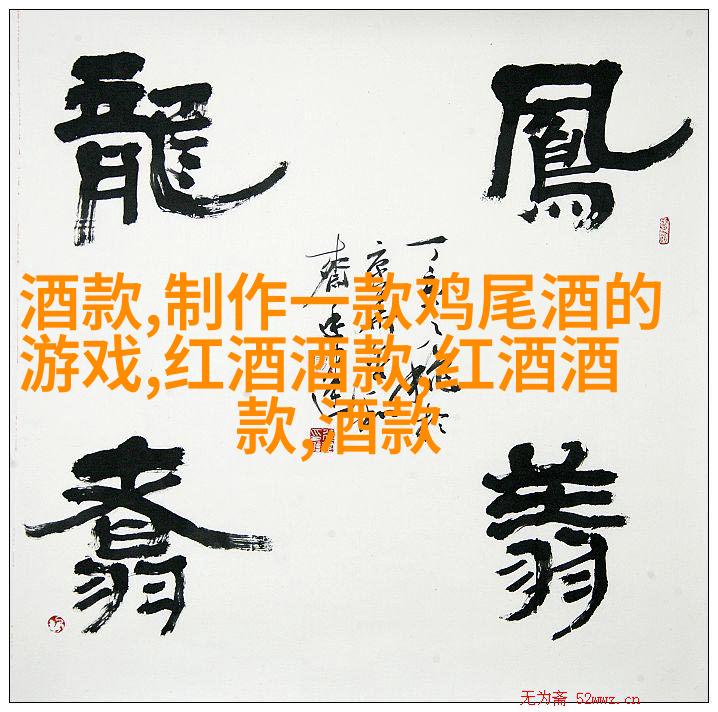 鳳翔
龍翥
酒款,制作一款鸡尾酒的
游戏,红酒酒款,红酒酒
款,酒款
无为斋 52wwz.cn